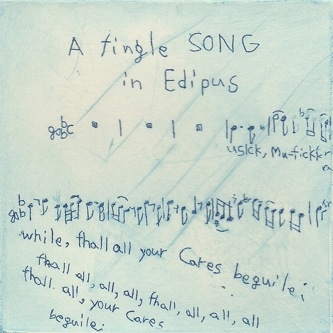 A fingle SONG
in Edipus
usick, Mu-fickfor
while, fhall all your Cares beguile;
fhall all, all, all, fhall, all, all, all
fhall all, your Cares
beguile;